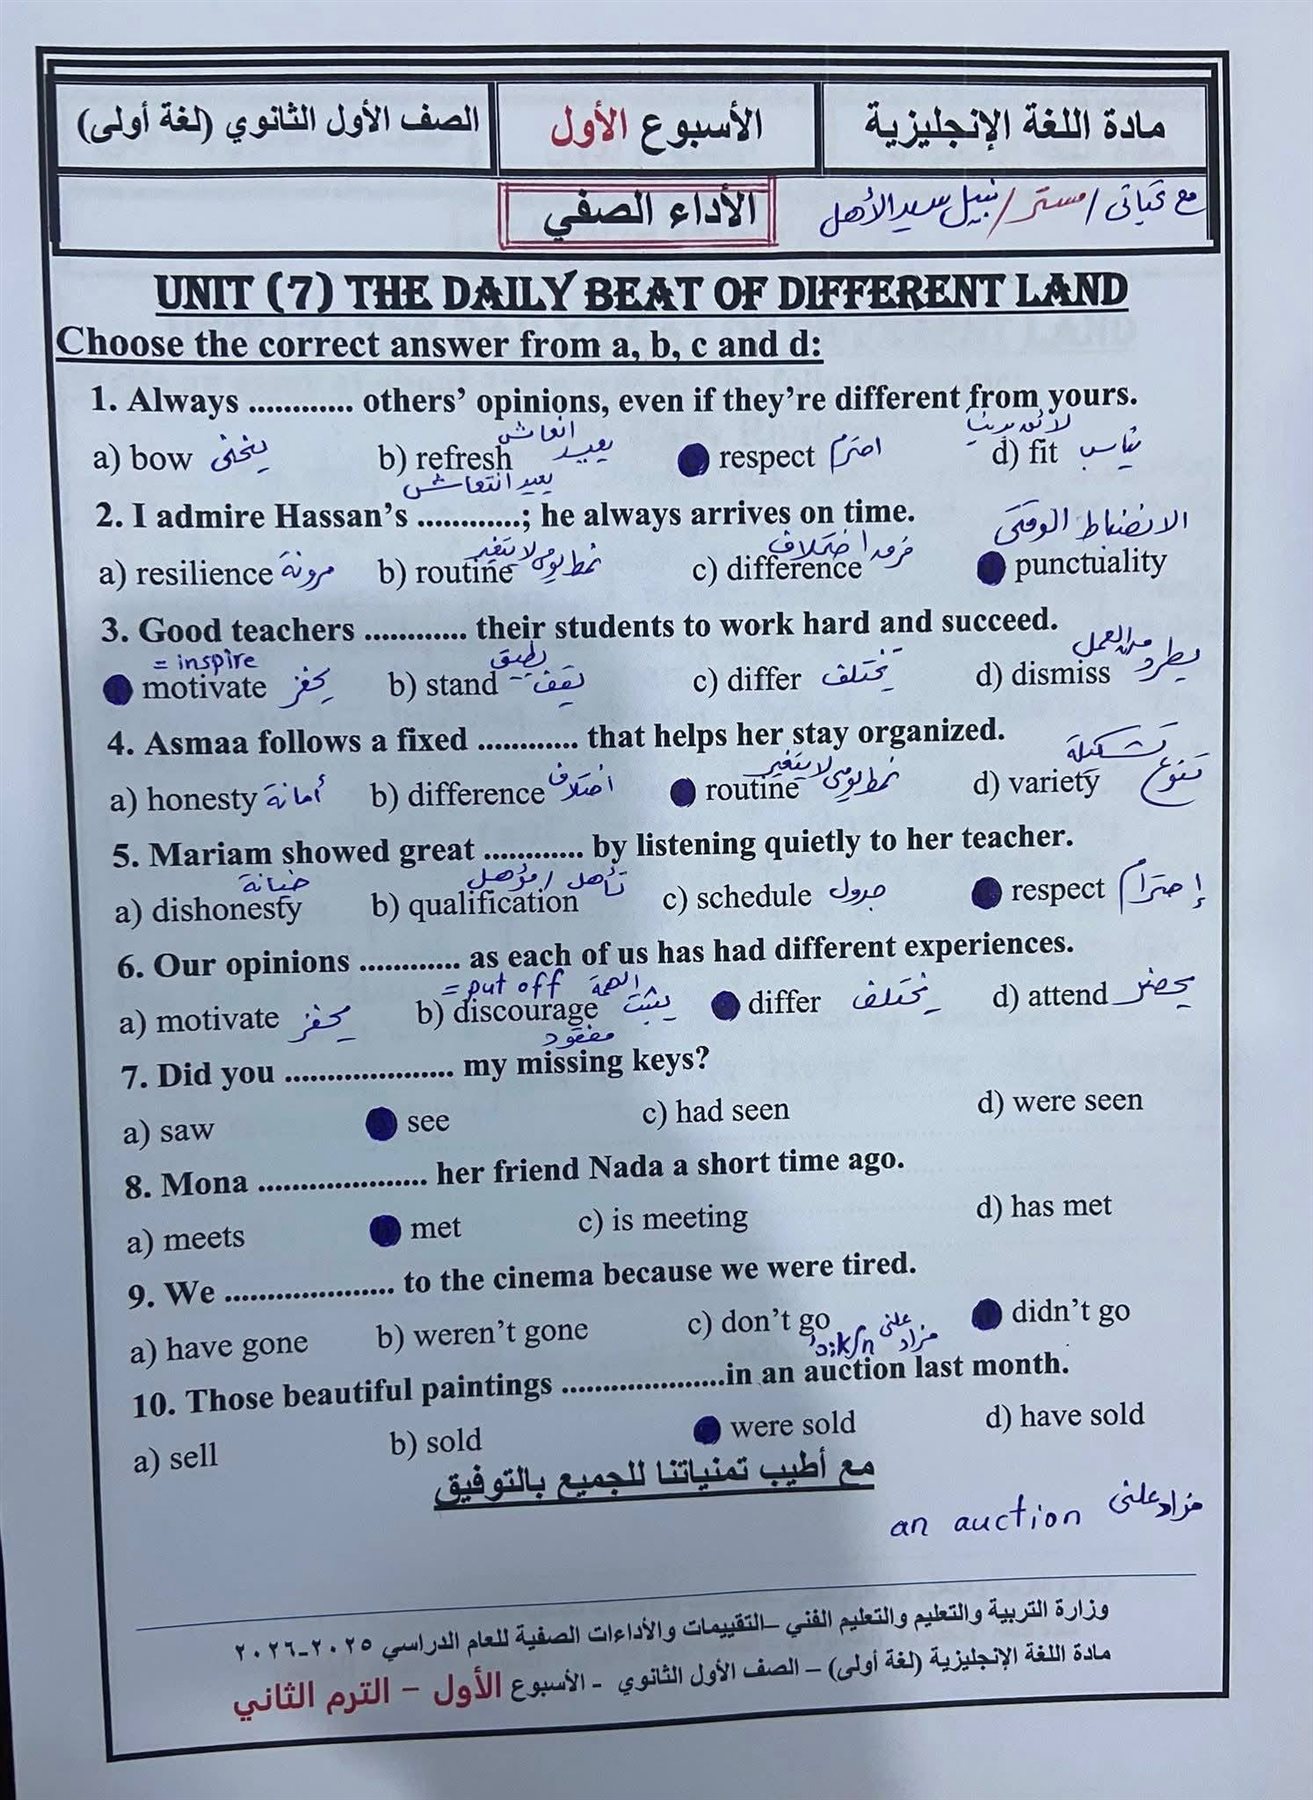 مادة اللغة الإنجليزية
الأسبوع الأول
الصف الأول الثانوي (لغة أولى)
مع تحياتى / مستر / نبيل سيد الأهل
الأداء الصفي
UNIT (7) THE DAILY BEAT OF DIFFERENT LAND
Choose the correct answer from a, b, c and d:
1. Always ............ others' opinions, even if they're different from yours.
انعاش
a) bow ينحنى b) refresh يعيد respect احترم d) fit يناسب
يعيد انتعاش
2. I admire Hassan's ............; he always arrives on time.
الانضباط الوقتى
a) resilience مرونة b) routine نمط يومى لا يتغير c) difference اختلاف punctuality
3. Good teachers ............ their students to work hard and succeed.
= inspire يطيق من العمل
motivate يحفز b) stand يقف c) differ تختلف d) dismiss يطرد
4. Asmaa follows a fixed ............ that helps her stay organized.
تشكيلة
a) honesty أمانة b) difference اختلاف routine نمط يومى لا يتغير d) variety تنوع
5. Mariam showed great ............ by listening quietly to her teacher.
a) dishonesty خيانة b) qualification تأهل / مؤهل c) schedule جدول respect إحترام
6. Our opinions ............ as each of us has had different experiences.
= put off الهمة
a) motivate يحفز b) discourage يثبت differ يختلف d) attend يحضر
مفقود
7. Did you .................... my missing keys?
a) saw see c) had seen d) were seen
8. Mona .................... her friend Nada a short time ago.
a) meets met c) is meeting d) has met
9. We .................... to the cinema because we were tired.
a) have gone b) weren't gone c) don't go didn't go
مزاد علنى
10. Those beautiful paintings ....................in an auction last month.
a) sell b) sold were sold d) have sold
مع أطيب تمنياتنا للجميع بالتوفيق
an auction مزاد علنى
وزارة التربية والتعليم والتعليم الفني –التقييمات والأداءات الصفية للعام الدراسي ٢٠٢٥-٢٠٢٦
مادة اللغة الإنجليزية (لغة أولى) – الصف الأول الثانوي - الأسبوع الأول – الترم الثاني